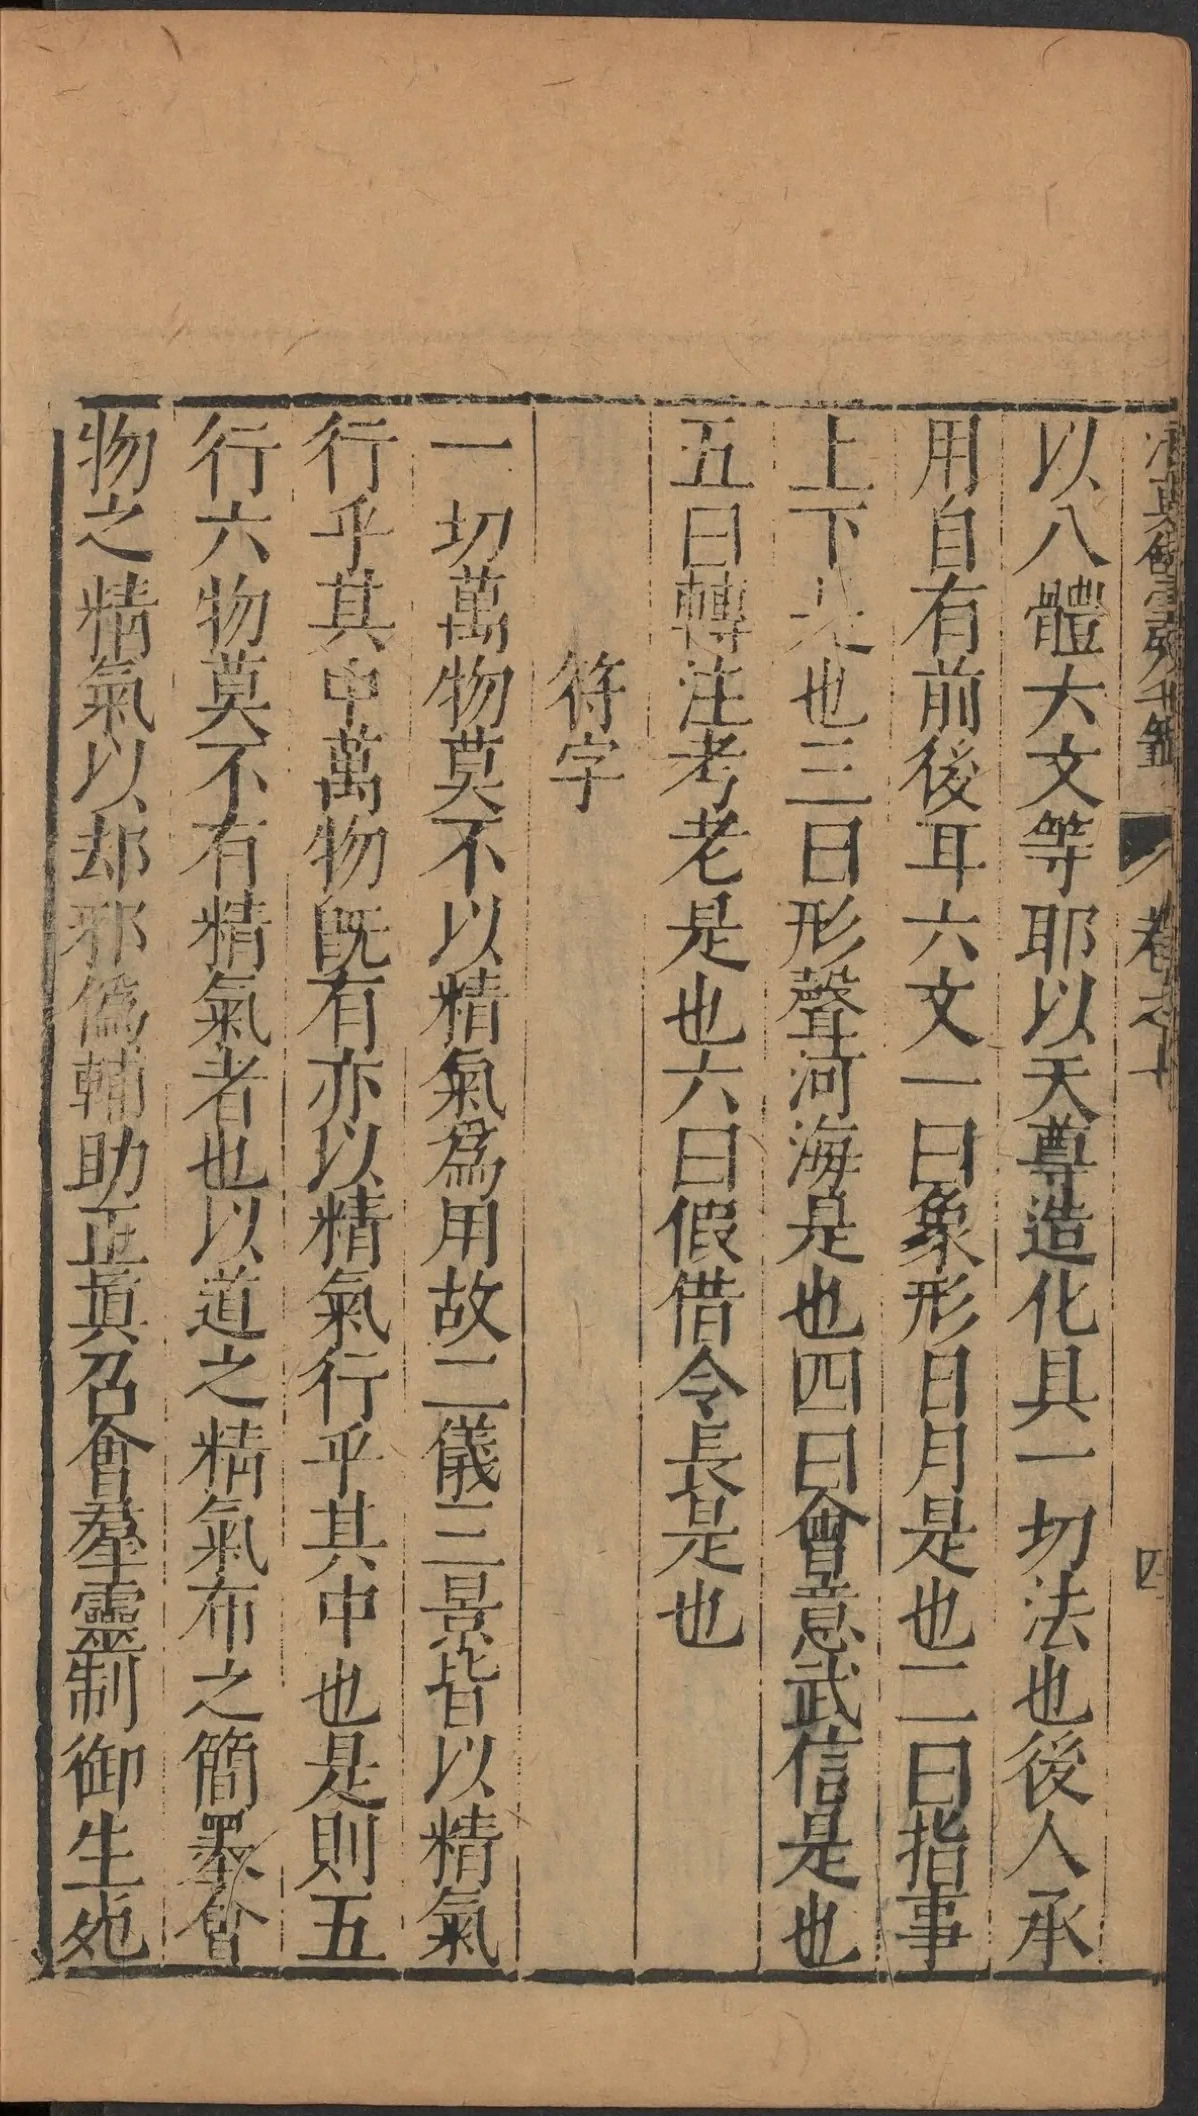 卷之十
四
以八體六文等耶以天尊造化具一切法也後人承
用自有前後耳六文一曰象形日月是也二曰指事
上下是也三曰形聲河海是也四曰會意武信是也
五曰轉注考老是也六曰假借令長是也
符字
一切萬物莫不以精氣爲用故二儀三景皆以精氣
行乎其中萬物既有亦以精氣行乎其中也是則五
行六物莫不有精氣者也以道之精氣布之簡墨會
物之精氣以却邪僞輔助正眞召會羣靈制御生